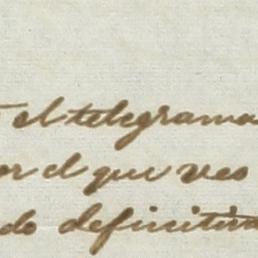 el telegrama
or el que veo
do definitiva